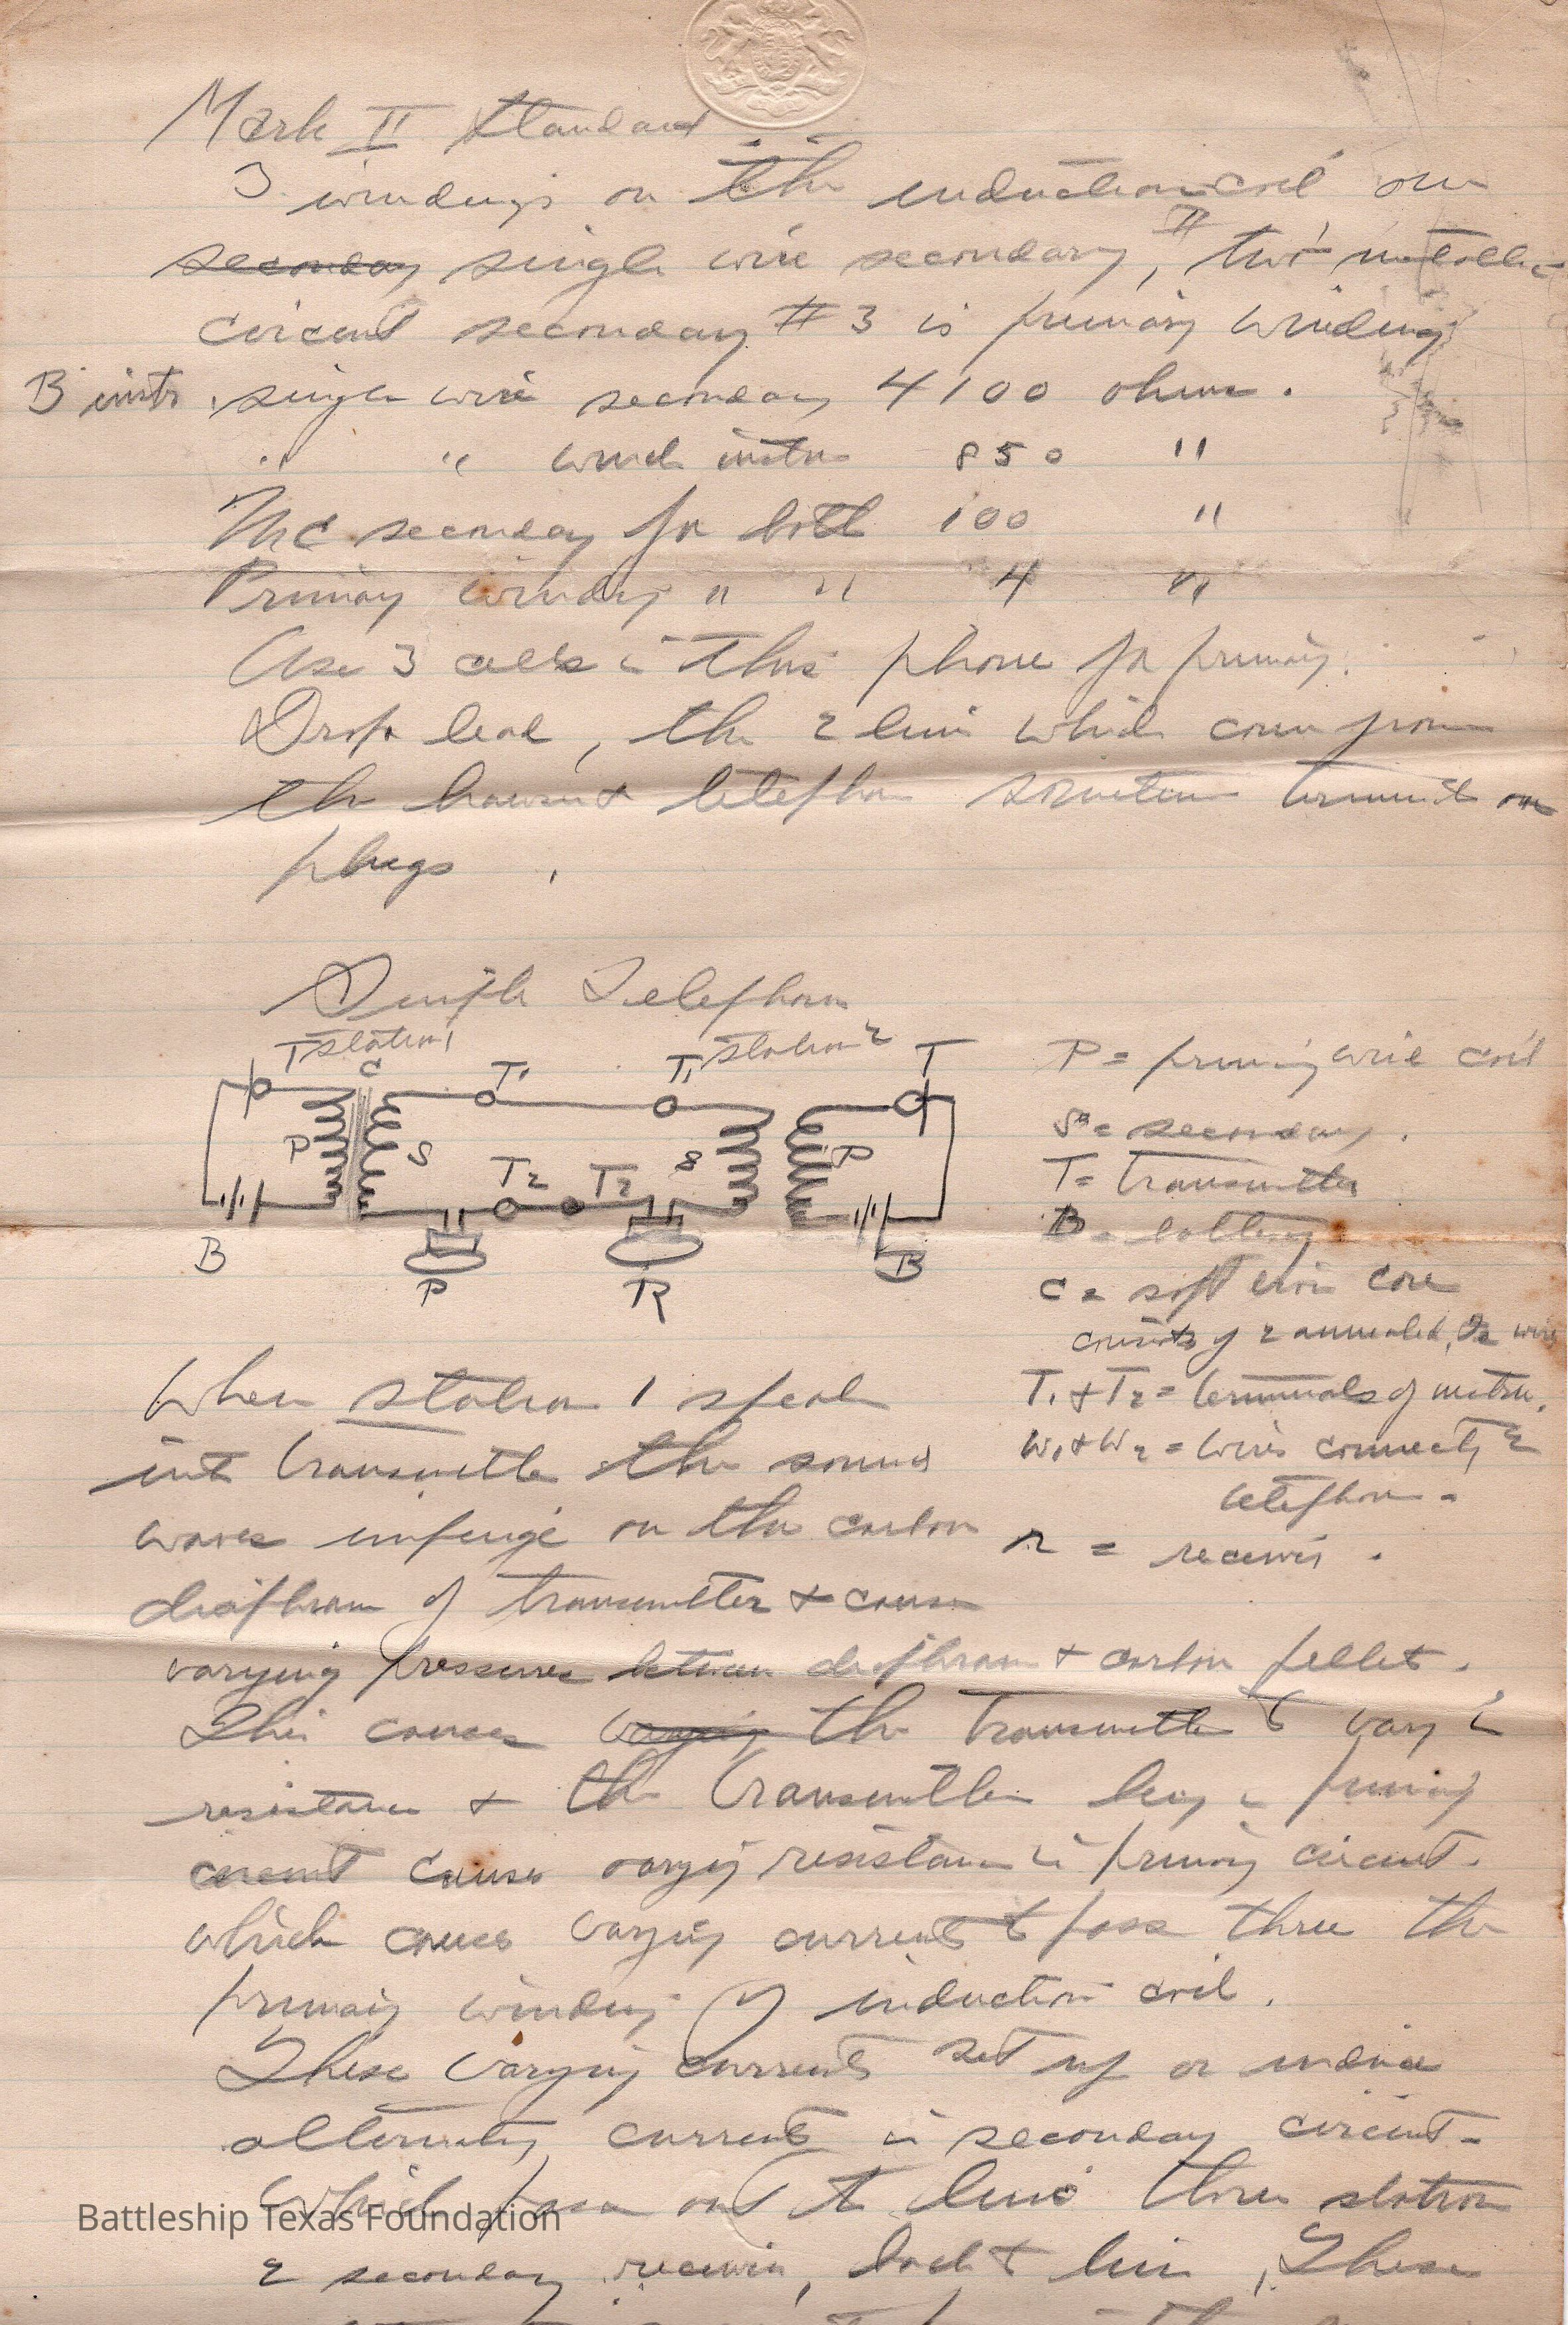 Mark II Standard
3 windings on the induction coil one
secondary single wire secondary, #2 metallic
circuit secondary #3 is primary winding
B instr. single wire secondary 4100 ohms.
" " instr 850 "
MC secondary for both 100 "
Primary winding " " 4 "
Use 3 cells in this phone for primary.
Drop lead, the 2 lines which come from
the telephone sometimes terminate on
plugs.
Simple Telephone
T station 1 C T1 T1 station 2 T
P S T2 T2 S P
B P R B
P = primary wire coil
S = secondary.
T = transmitter
B = battery
C = soft iron core
consists of annealed, wire
T1 & T2 = terminals of instru.
W1 & W2 = wires connecting 2
telephone.
r = receiver.
When station 1 speak
into transmitter the sound
waves impinge on the carbon
diaphram of transmitter & cause
varying pressures between diaphram & carbon pellet.
This causes varying the transmitter to vary in
resistance & the transmitter being in primary
circuit causes varying resistance in primary circuit.
which causes varying currents to pass three the
primary winding of induction coil.
These varying currents set up or induce
alternating currents in secondary circuit-
which pass out to line three station
2 secondary receiver, back to line, These
Battleship Texas Foundation